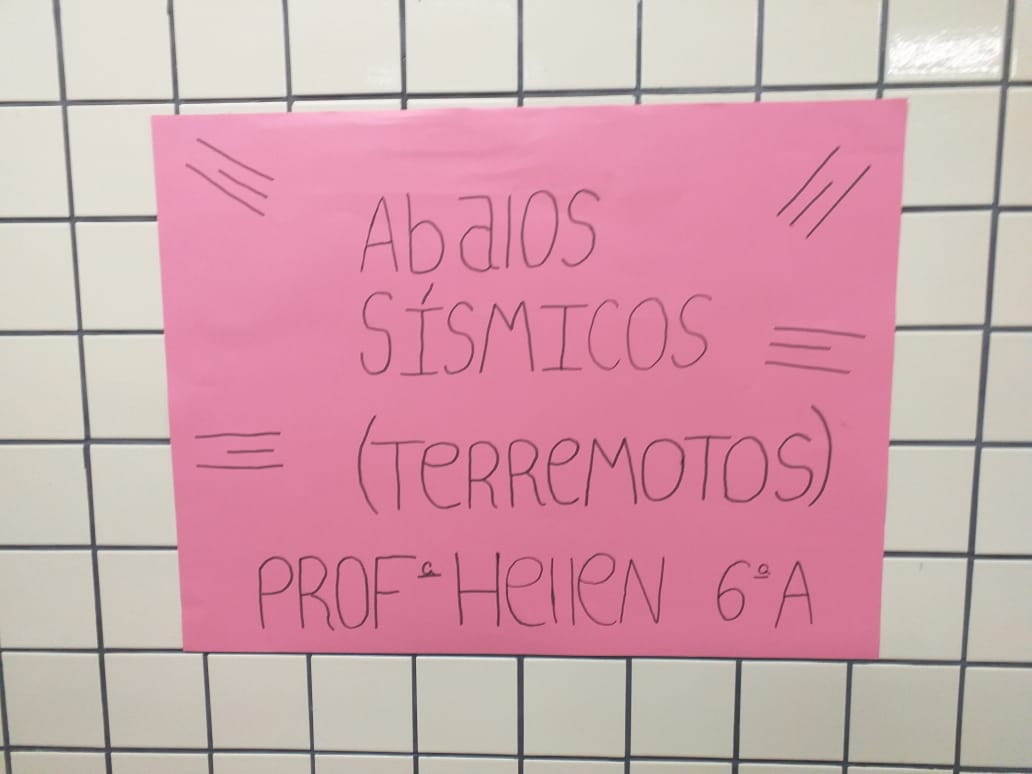 Abalos
SÍSMICOS
(TeRReMOTOS)
PROFª HelleN 6ª A